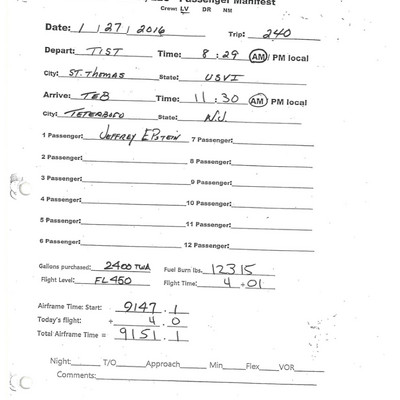 Passenger Manifest
Crew: LV DR NM
Date: 1 / 27 / 2016 Trip: 240
Depart: TIST Time: 8 : 29 AM / PM local
City: ST. THOMAS State: USVI
Arrive: TEB Time: 11 : 30 AM / PM local
City: TETERBORO State: NJ
1 Passenger: JEFFREY EPSTEIN 7 Passenger:
2 Passenger: 8 Passenger:
3 Passenger: 9 Passenger:
4 Passenger: 10 Passenger:
5 Passenger: 11 Passenger:
6 Passenger: 12 Passenger:
Gallons purchased: 2400 TWA Fuel Burn lbs. 12315
Flight Level: FL450 Flight Time: 4 +01
Airframe Time: Start: 9147 . 1
Today's flight: + 4 . 0
Total Airframe Time = 9151 . 1
Night: T/O Approach Min Flex VOR
Comments: